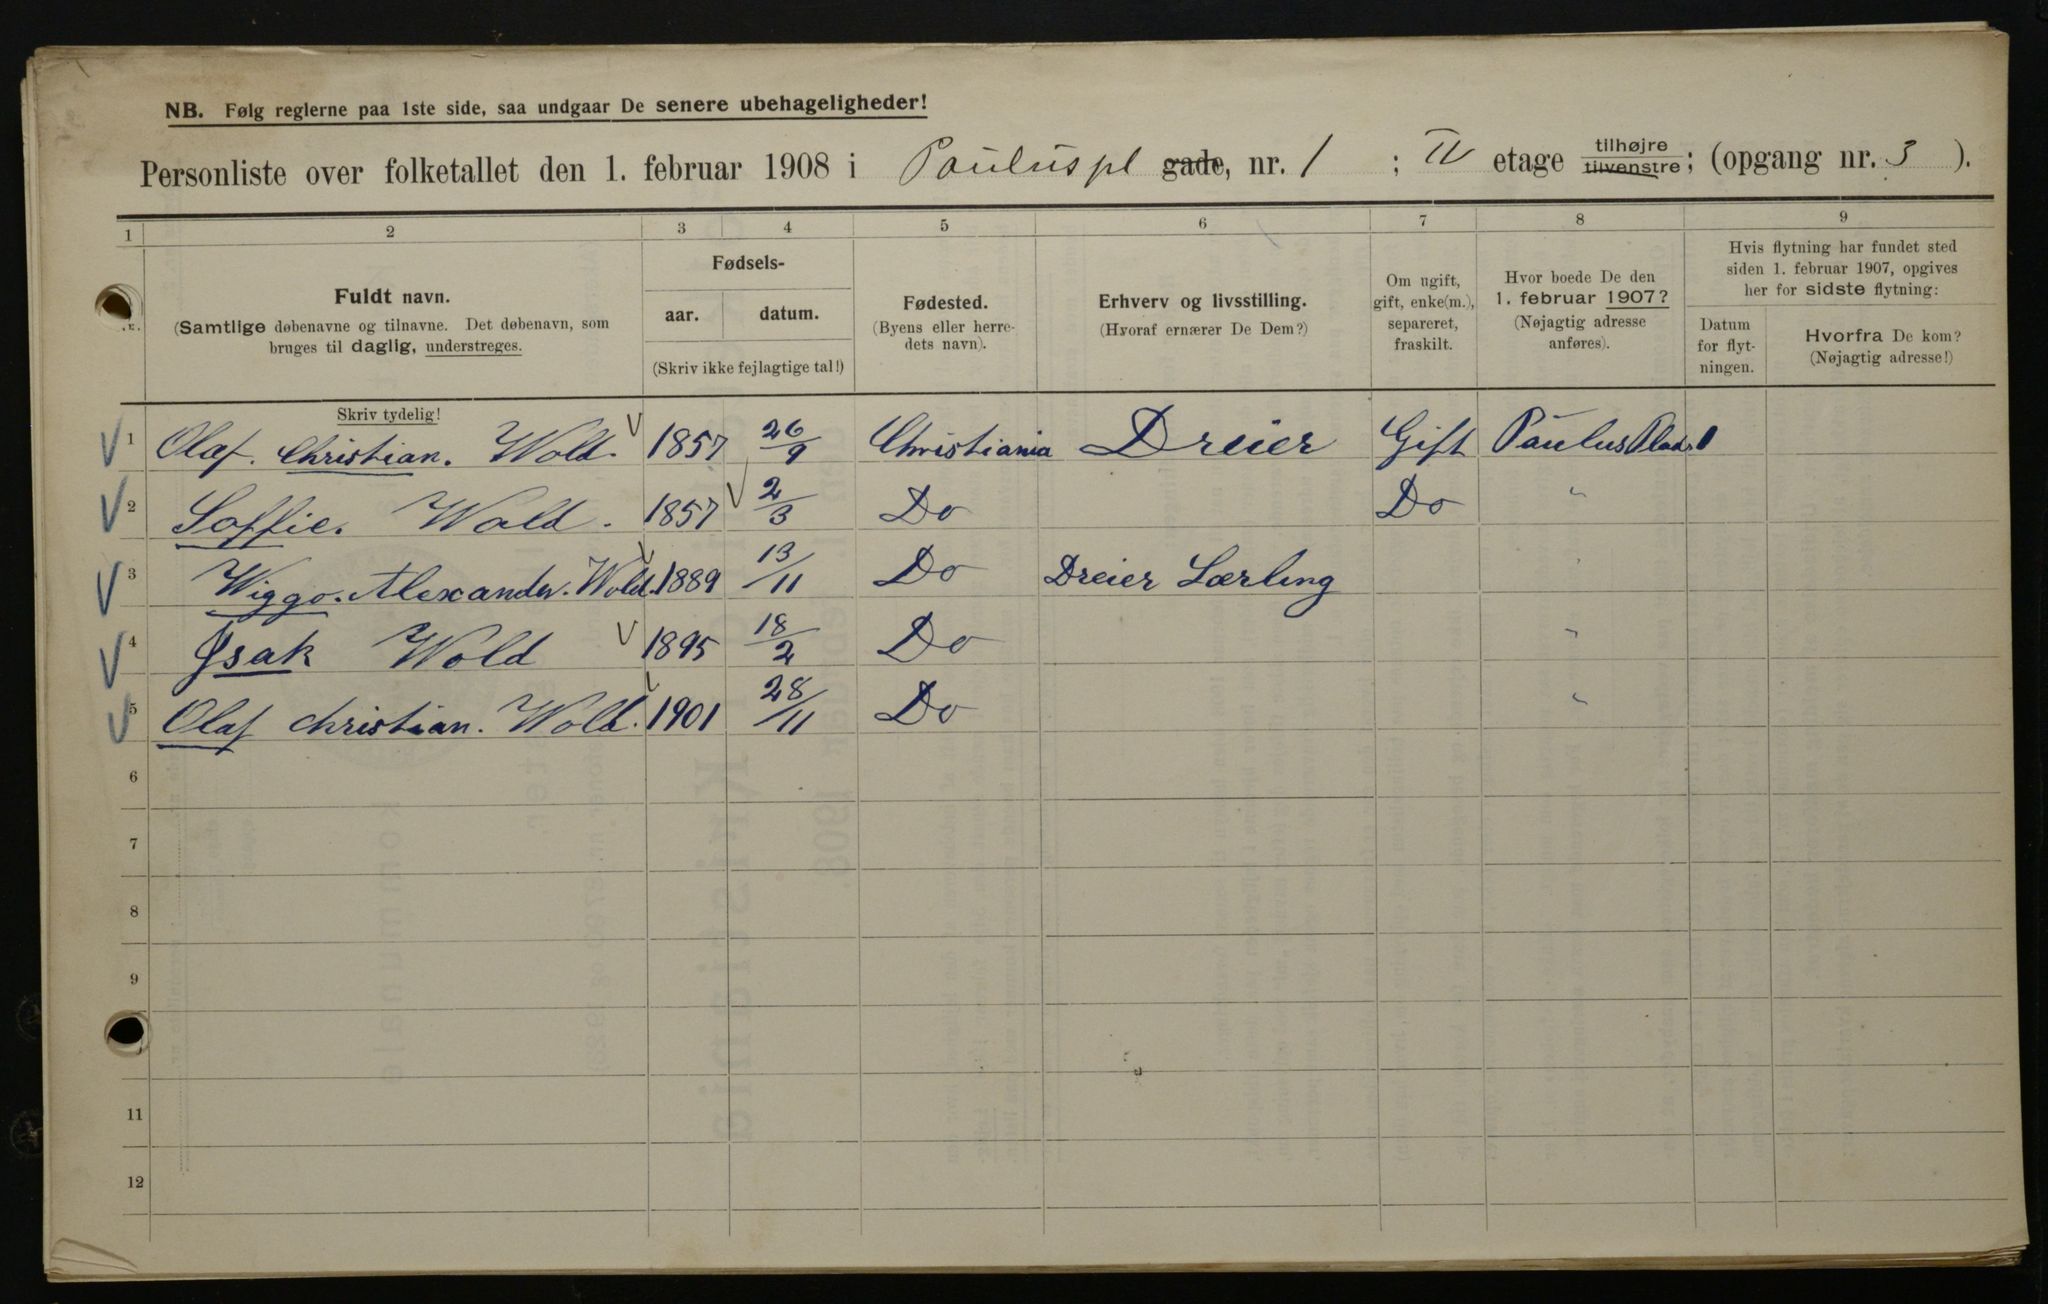 NB. Følg reglerne paa 1ste side, saa undgaar De senere ubehageligheder!
Personliste over folketallet den 1. februar 1908 i Pauluspl gade, nr. 1 ; IV etage tilhøjre tilvenstre; (opgang nr. 3 ).
1 2 3 4 5 6 7 8 9
Fuldt navn.
(Samtlige døbenavne og tilnavne. Det døbenavn, som
bruges til daglig, understreges.
Skriv tydelig!
Fødsels-
aar. datum.
(Skriv ikke fejlagtige tal!)
Fødested.
(Byens eller herre-
dets navn).
Erhverv og livsstilling.
(Hvoraf ernærer De Dem?)
Om ugift,
gift, enke(m.),
separeret,
fraskilt.
Hvor boede De den
1. februar 1907?
(Nøjagtig adresse
anføres).
Hvis flytning har fundet sted
siden 1. februar 1907, opgives
her for sidste flytning:
Datum
for flyt-
ningen.
Hvorfra De kom?
(Nøjagtig adresse!)
1 Olaf. Christian. Wold. 1857 26/9 Christiania Dreier Gift Paulus Plads 1
2 Soffie. Wold. 1857 2/3 Do Do "
3 Wiggo. Alexander. Wold. 1889 13/11 Do Dreier Lærling "
4 Isak Wold 1895 18/2 Do "
5 Olaf christian. Wold. 1901 28/11 Do "
6
7
8
9
11
12